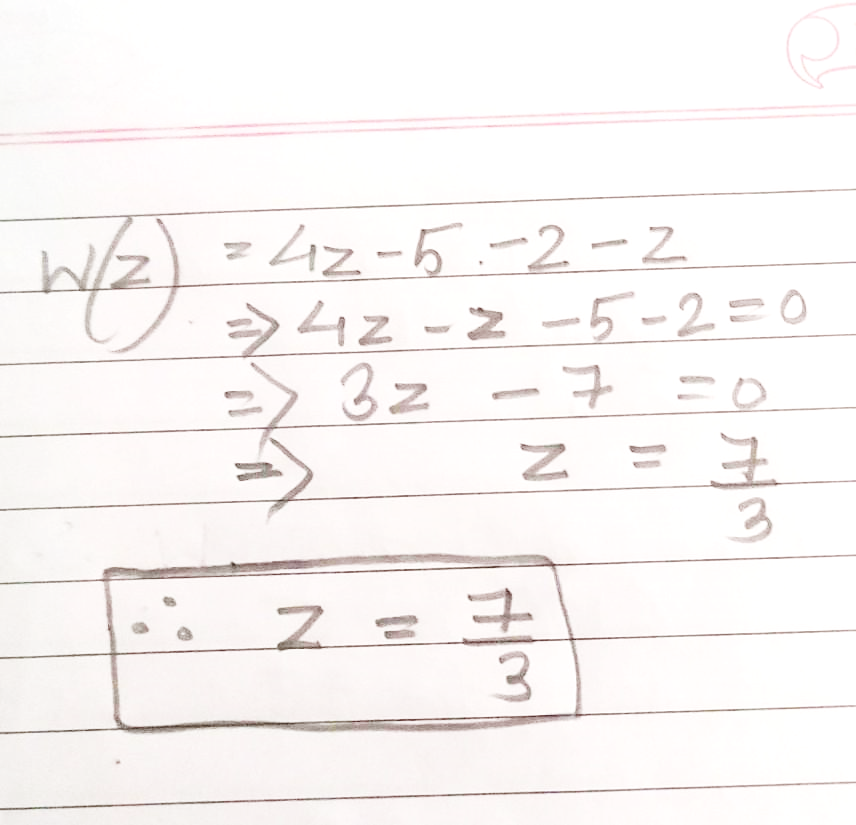 W(z) = 4z - 5 . - 2 - z
=> 4z - z - 5 - 2 = 0
=> 3z - 7 = 0
=> z = 7/3
∴ z = 7/3